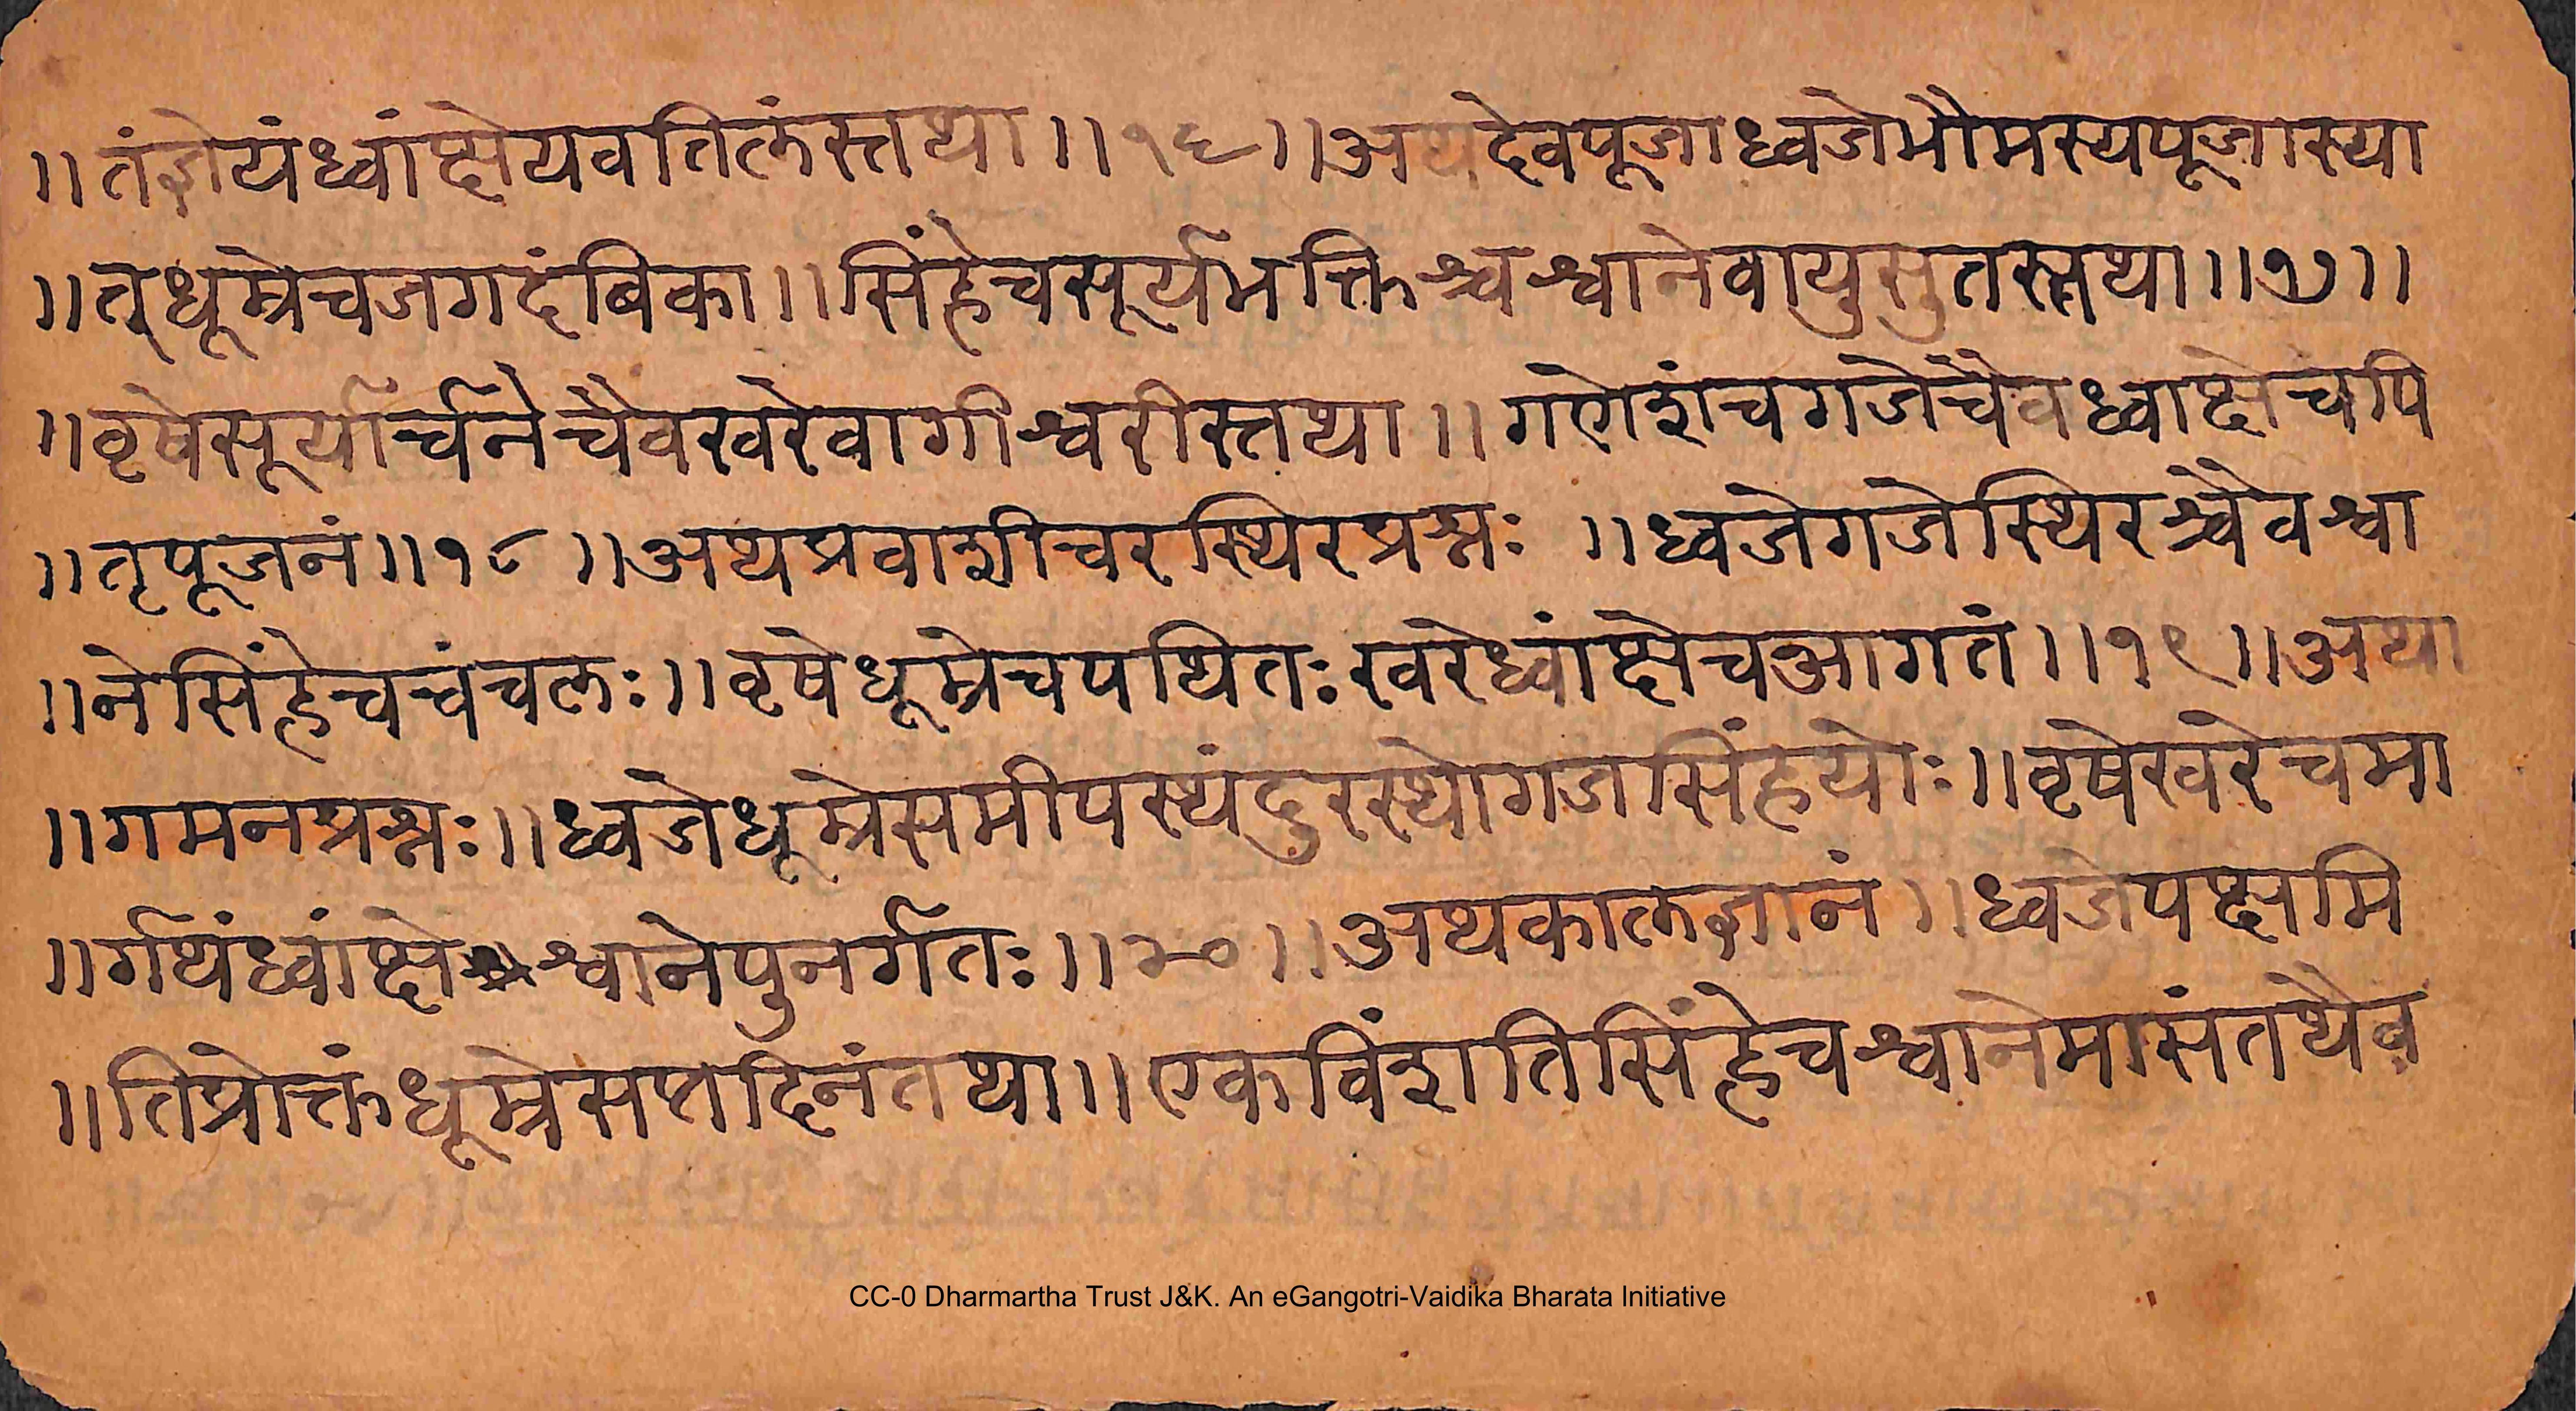 ॥तंज्ञेयंध्वांक्षेयवतिलंस्तथा॥१६॥अथदेवपूजाध्वजेभौमस्यपूजास्या
॥त्धूम्रेचजगदंबिका॥सिंहेचसूर्यभक्तिश्चश्वानेवायुसुतस्तथा॥१७॥
॥वृषेसूर्यार्चनेचैवखरेवागीश्वरीस्तथा॥गणेशंचगजेचैवध्वाक्षेचपि
॥तृपूजनं॥१८॥अथप्रवाशीचरस्थिरप्रश्नः॥ध्वजेगजेस्थिरश्चैवश्वा
॥नेसिंहेचचंचलः॥वृषेधूम्रेचपथितःखरेध्वांक्षेचआगतं॥१९॥अथा
॥गमनप्रश्नः॥ध्वजेधूम्रेसमीपस्थंदुरस्थोगजसिंहयोः॥वृषेखरेचमा
॥र्गथंध्वांक्षेश्वानेपुनर्गतः॥२०॥अथकालज्ञानं॥ध्वजेपक्षमि
॥तिप्रोक्तंधूम्रेसप्तदिनंतथा॥एकविंशतिसिंहेचश्वानेमासंतथैव
CC-0 Dharmartha Trust J&K. An eGangotri-Vaidika Bharata Initiative